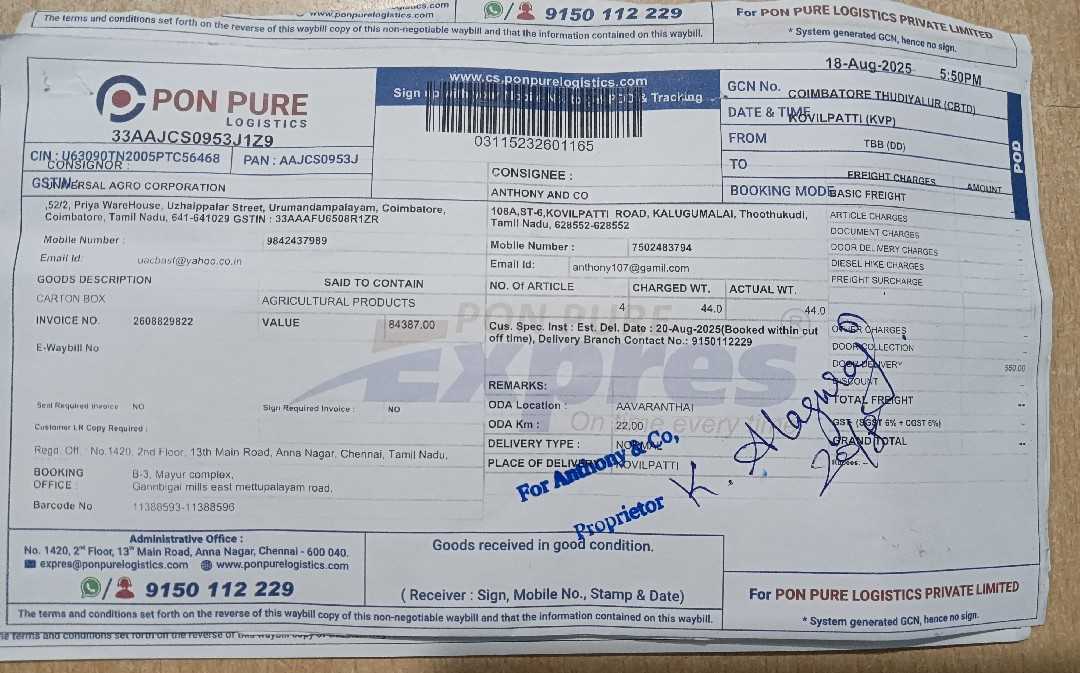 www.ponpurelogistics.com
9150 112 229
The terms and conditions set forth on the reverse of this waybill copy of this non-negotiable waybill and that the information contained on this waybill.
For PON PURE LOGISTICS PRIVATE LIMITED
* System generated GCN, hence no sign.
18-Aug-2025 5:50PM
PON PURE
LOGISTICS
33AAJCS0953J1Z9
CIN : U63090TN2005PTC56468 PAN : AAJCS0953J
www.cs.ponpurelogistics.com
& Tracking
03115232601165
GCN No. COIMBATORE THUDIYALUR (CBTD)
DATE & TIME KOVILPATTI (KVP)
FROM TBB (DD)
TO
BOOKING MODE
POD
CONSIGNOR :
GSTIN:
UNIVERSAL AGRO CORPORATION
,52/2, Priya WareHouse, Uzhaippalar Street, Urumandampalayam, Coimbatore,
Coimbatore, Tamil Nadu, 641-641029 GSTIN : 33AAAFU6508R1ZR
Mobile Number : 9842437989
Email Id: uacbast@yahoo.co.in
CONSIGNEE :
ANTHONY AND CO
108A,ST-6,KOVILPATTI ROAD, KALUGUMALAI, Thoothukudi,
Tamil Nadu, 628552-628552
Mobile Number : 7502483794
Email Id: anthony107@gamil.com
FREIGHT CHARGES AMOUNT
BASIC FREIGHT
ARTICLE CHARGES
DOCUMENT CHARGES
DOOR DELIVERY CHARGES
DIESEL HIKE CHARGES
FREIGHT SURCHARGE
OTHER CHARGES
DOOR COLLECTION
DOOR DELIVERY 550.00
DISCOUNT
TOTAL FREIGHT --
GST (SGST 6% + CGST 6%)
GRAND TOTAL --
Rupees: --
GOODS DESCRIPTION SAID TO CONTAIN
CARTON BOX AGRICULTURAL PRODUCTS
INVOICE NO. 2608829822 VALUE 84387.00
E-Waybill No
NO. Of ARTICLE CHARGED WT. ACTUAL WT.
4 44.0 44.0
PON PURE
Expres
On time every time
Cus. Spec. Inst : Est. Del. Date : 20-Aug-2025(Booked within cut
off time), Delivery Branch Contact No.: 9150112229
REMARKS:
ODA Location : AAVARANTHAI
ODA Km : 22.00
DELIVERY TYPE : NORMAL
PLACE OF DELIVERY KOVILPATTI
Sent Required Invoice NO Sign Required Invoice : NO
Customer LR Copy Required :
Regd. Off. : No.1420, 2nd Floor, 13th Main Road, Anna Nagar, Chennai, Tamil Nadu,
BOOKING OFFICE : B-3, Mayur complex,
Gannbigal mills east mettupalayam road,
Barcode No 11388593-11388596
For Anthony & Co,
Proprietor
K. Alaguraj
Administrative Office :
No. 1420, 2nd Floor, 13th Main Road, Anna Nagar, Chennai - 600 040.
expres@ponpurelogistics.com www.ponpurelogistics.com
9150 112 229
Goods received in good condition.
( Receiver : Sign, Mobile No., Stamp & Date)
For PON PURE LOGISTICS PRIVATE LIMITED
* System generated GCN, hence no sign.
The terms and conditions set forth on the reverse of this waybill copy of this non-negotiable waybill and that the information contained on this waybill.